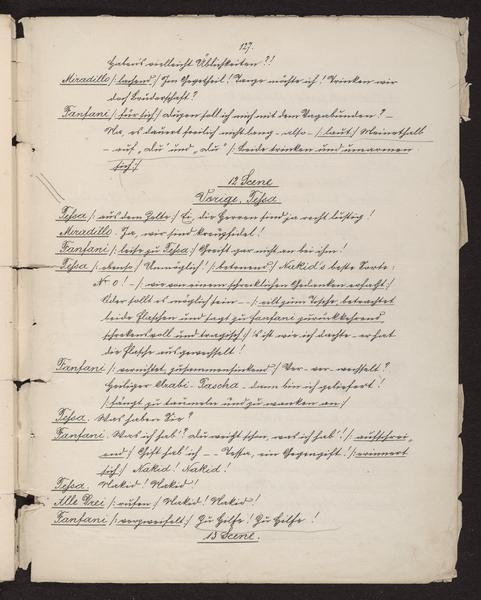 127.
Haben's vielleicht Üblichkeiten?!
Miradillo /: lachend :/ Im Gegetheil! Tanze möchte ich! Trinken wir
doch Bruderschaft?
Fanfani /: für sich :/ Duzen soll ich mich mit dem Vagabunden? -
Na, es dauert freilich nicht lang - also - /: laut :/ Meinethalb
- auf „Du' und „Du'! /: beide trinken und umarmen
sich :/
12 Scene
Vorige, Tessa.
Tessa /: aus dem Zelte :/ Ei, die Herren sind ja recht lustig!
Miradillo. Ja, wir sind kreuzfidel!
Fanfani /: leise zu Tessa :/ Greift gar nicht an bei ihm!
Tessa /: ebenso :/ Unmöglich! /: betonend :/ Nakid's beste Sorte:
No 0! - /: wie von einem schrecklichen Gedanken erfaßt :/
Oder sollt es möglich sein - /: eilt zum Tische, betrachtet
beide Flaschen und sagt zu Fanfani zurückkehrend
schreckensvoll und tragisch :/ 's ist wie ich dachte - er hat
die Flasche ausgewechselt!
Fanfani /: vernichtet, zusammensinkend :/ Ver- ver- wechselt?
Heiliger Arabi-Pascha - dann bin ich geliefert!
/: fängt zu taumeln und zu wanken an :/
Tessa. Was haben Sie?
Fanfani. Was ich hab'? Du weißt schon, was ich hab'! /: aufschrei-
end :/ Gift hab' ich - - Tessa, ein Gegengift! /: erinnert
sich :/ Nakid! Nakid!
Tessa. Nakid! Nakid!
Alle Drei /: rufen :/ Nakid! Nakid!
Fanfani /: verzweifelt :/ Zu Hilfe! Zu Hilfe!
13 Scene.